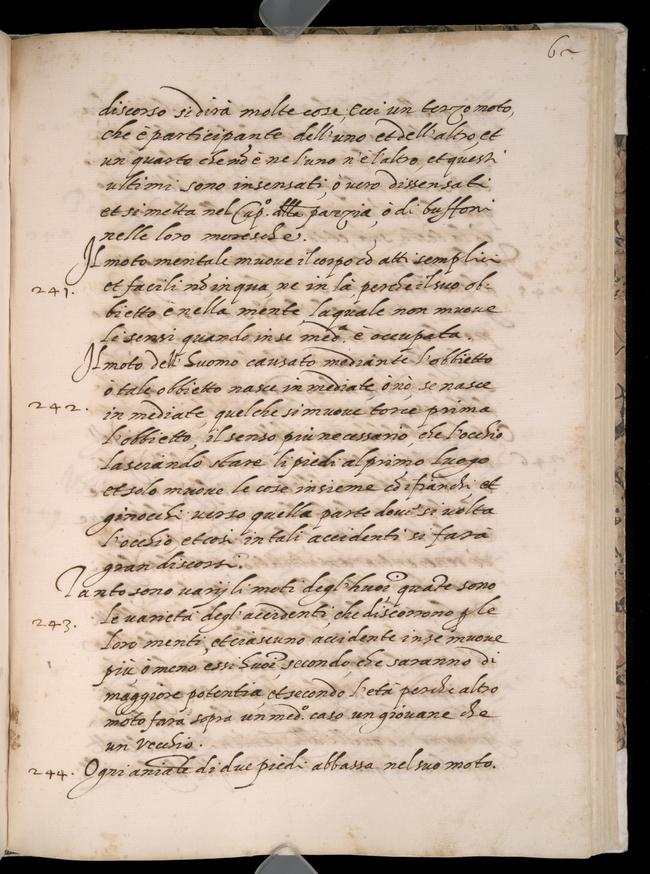 62
discorso si dirà molte cose, Ecci un terzo moto,
che è participante dell'uno et dell'altro, et
un quarto che nō è ne l'uno n'è l'altro, et questi
ultimi sono insensati, ò vero dissensati
et si metta nel Cap.º della pazzia, ò di buffoni
nelle loro moresche.
Il moto mentale muove il corpo cō atti semplici
241. et facili nō in qua, ne in là, perche il suo ob-
bietto è nella mente, laquale non muove
li sensi quando in se med.ª è occupata.
Il moto dell'huomo causato mediante l'obbietto
ò tale obbietto nasce inmediate, ò nò, se nasce
242. in mediate, quel che si muove torce prima
l'obbietto, il senso piu necessario, che l'occhio
lasciando stare li piedi al primo luogo
et solo muove le cose insieme cō i fianchi et
ginocchi verso quella parte dove si volta
l'occhio et cosi in tali accidenti si farà
gran discorsi.
Tanto sono varij li moti degl'huoī quāte sono
243. le varietà degl'accidenti, che discorrono p le
loro menti, et ciascuno accidente in se muove
più ò meno essi huoī, secondo che saranno di
maggiore potentia, et secondo l'età perche altro
moto farà sopra un med.º caso un giovane che
un vecchio.
244. Ogni aniāle di due piedi abbassa nel suo moto.